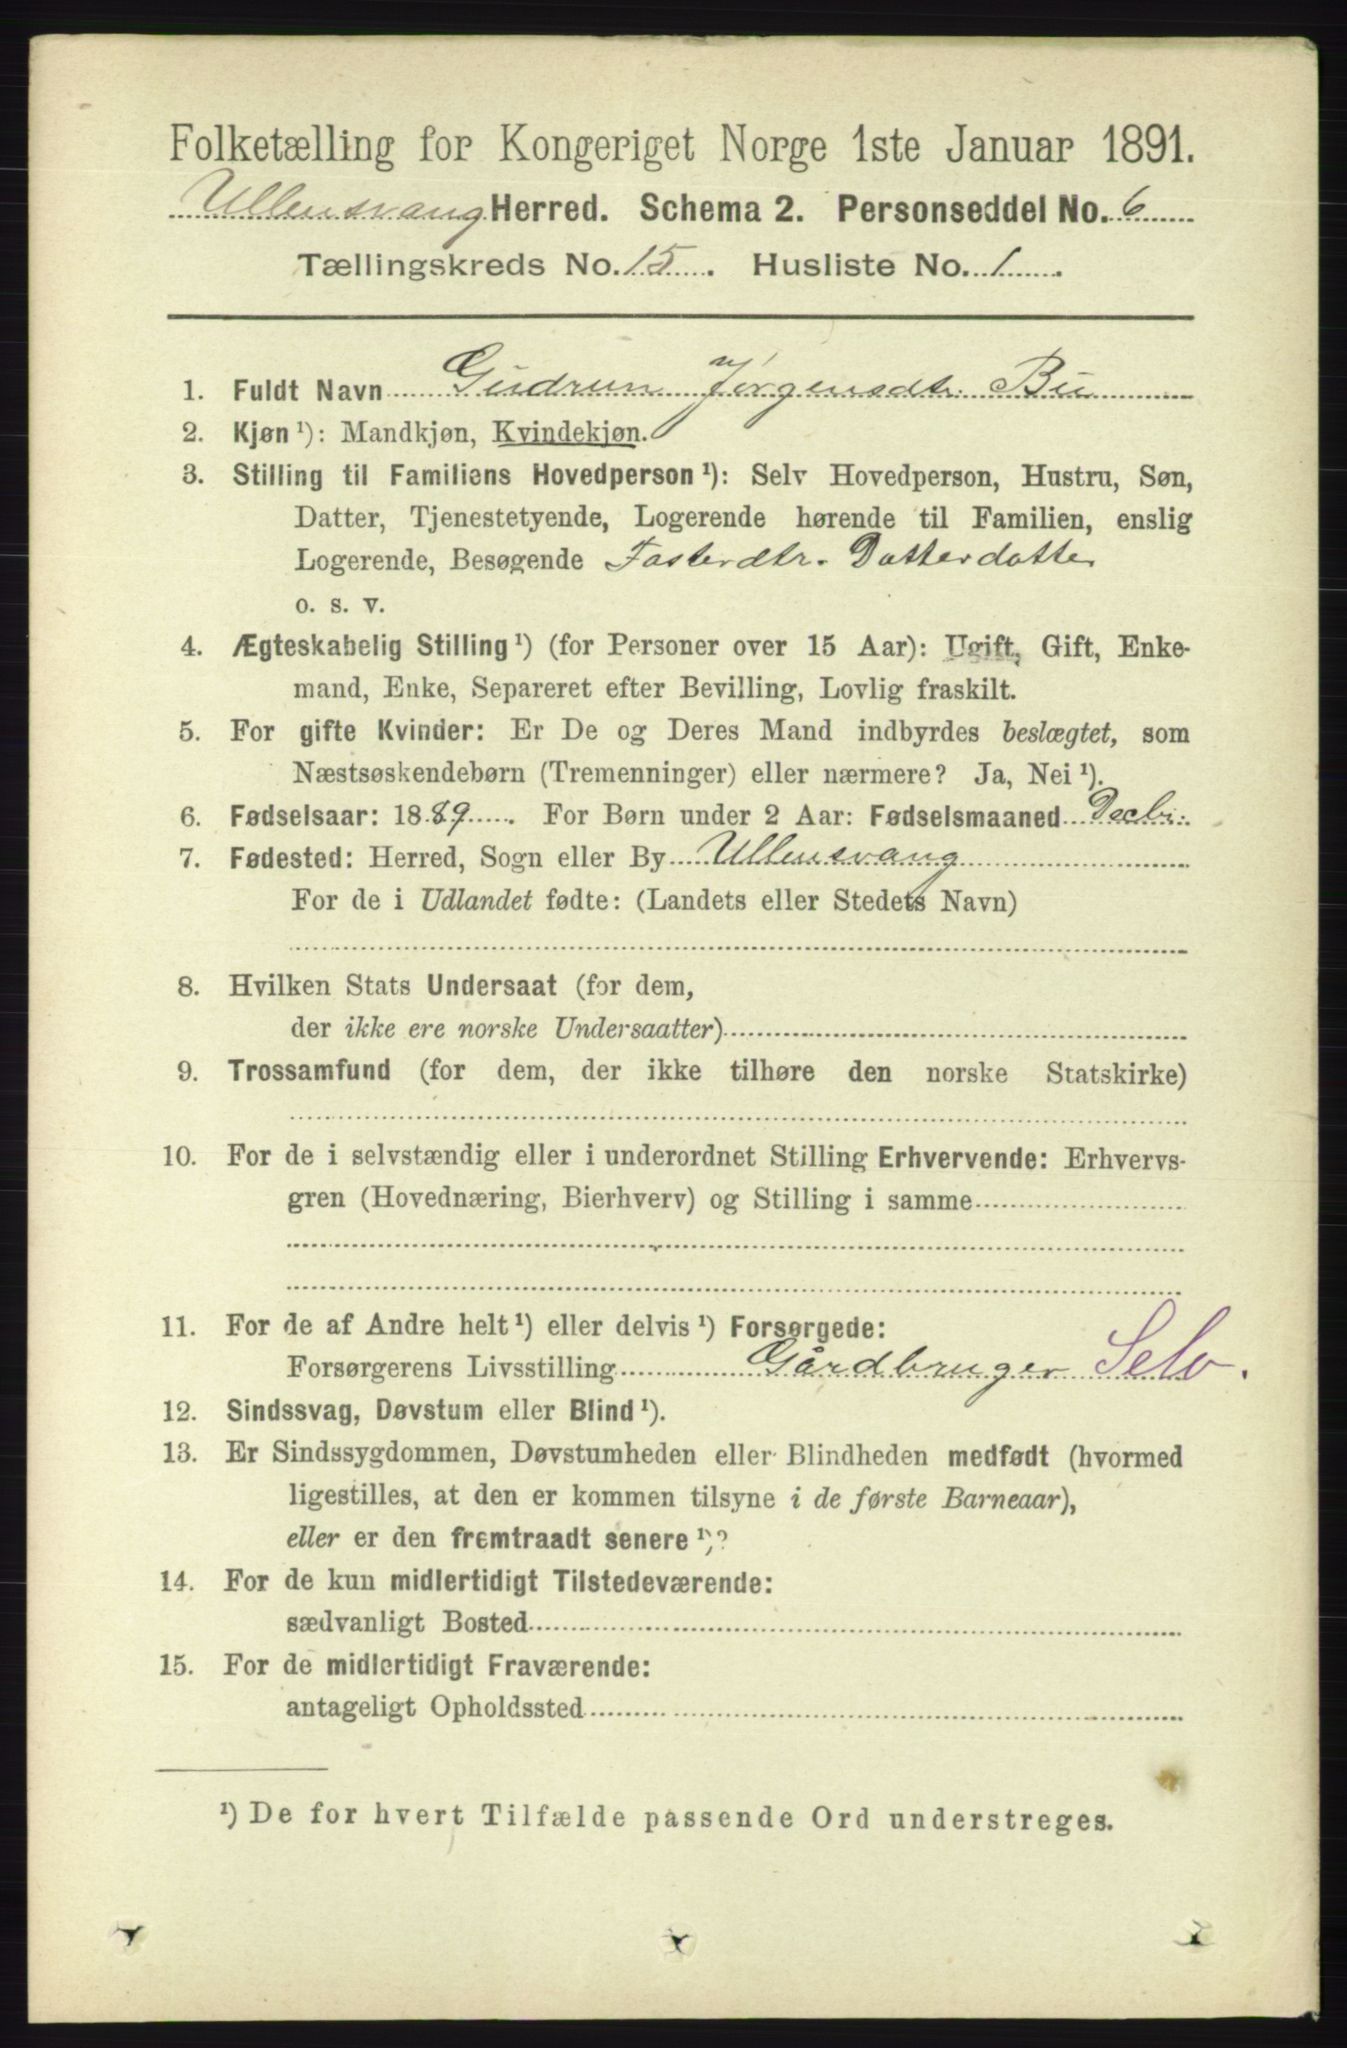 Folketælling for Kongeriget Norge 1ste Januar 1891.
Ullensvang Herred. Schema 2. Personseddel No. 6
Tællingskreds No. 15. Husliste No. 1.
1. Fuldt Navn Gudrun Jørgensdtr. Bu
2. Kjøn ¹): Mandkjøn, Kvindekjøn.
3. Stilling til Familiens Hovedperson ¹): Selv Hovedperson, Hustru, Søn,
Datter, Tjenestetyende, Logerende hørende til Familien, enslig
Logerende, Besøgende Fosterdtr. Datterdatter
o. s. v.
4. Ægteskabelig Stilling ¹) (for Personer over 15 Aar): Ugift, Gift, Enke-
mand, Enke, Separeret efter Bevilling, Lovlig fraskilt.
5. For gifte Kvinder: Er De og Deres Mand indbyrdes beslægtet, som
Næstsøskendebørn (Tremenninger) eller nærmere? Ja, Nei ¹).
6. Fødselsaar: 1889. For Børn under 2 Aar: Fødselsmaaned Decbr.
7. Fødested: Herred, Sogn eller By Ullensvang
For de i Udlandet fødte: (Landets eller Stedets Navn)
8. Hvilken Stats Undersaat (for dem,
der ikke ere norske Undersaatter)
9. Trossamfund (for dem, der ikke tilhøre den norske Statskirke)
10. For de i selvstændig eller i underordnet Stilling Erhvervende: Erhvervs-
gren (Hovednæring, Bierhverv) og Stilling i samme
11. For de af Andre helt ¹) eller delvis ¹) Forsørgede:
Forsørgerens Livsstilling Gårdbruger Selv.
12. Sindssvag, Døvstum eller Blind ¹).
13. Er Sindssygdommen, Døvstumheden eller Blindheden medfødt (hvormed
ligestilles, at den er kommen tilsyne i de første Barneaar),
eller er den fremtraadt senere ¹)?
14. For de kun midlertidigt Tilstedeværende:
sædvanligt Bosted
15. For de midlertidigt Fraværende:
antageligt Opholdssted
¹) De for hvert Tilfælde passende Ord understreges.